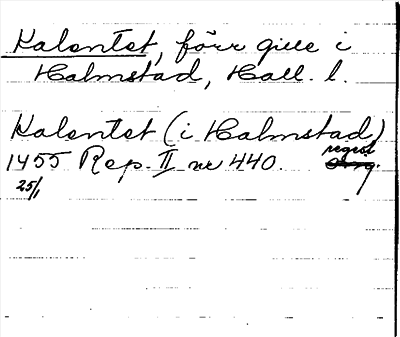 Kalentet, förr gille i
Halmstad, Hall. l.
Kalentet (i Halmstad)
1455 Rep. II nr 440. regist
25/1